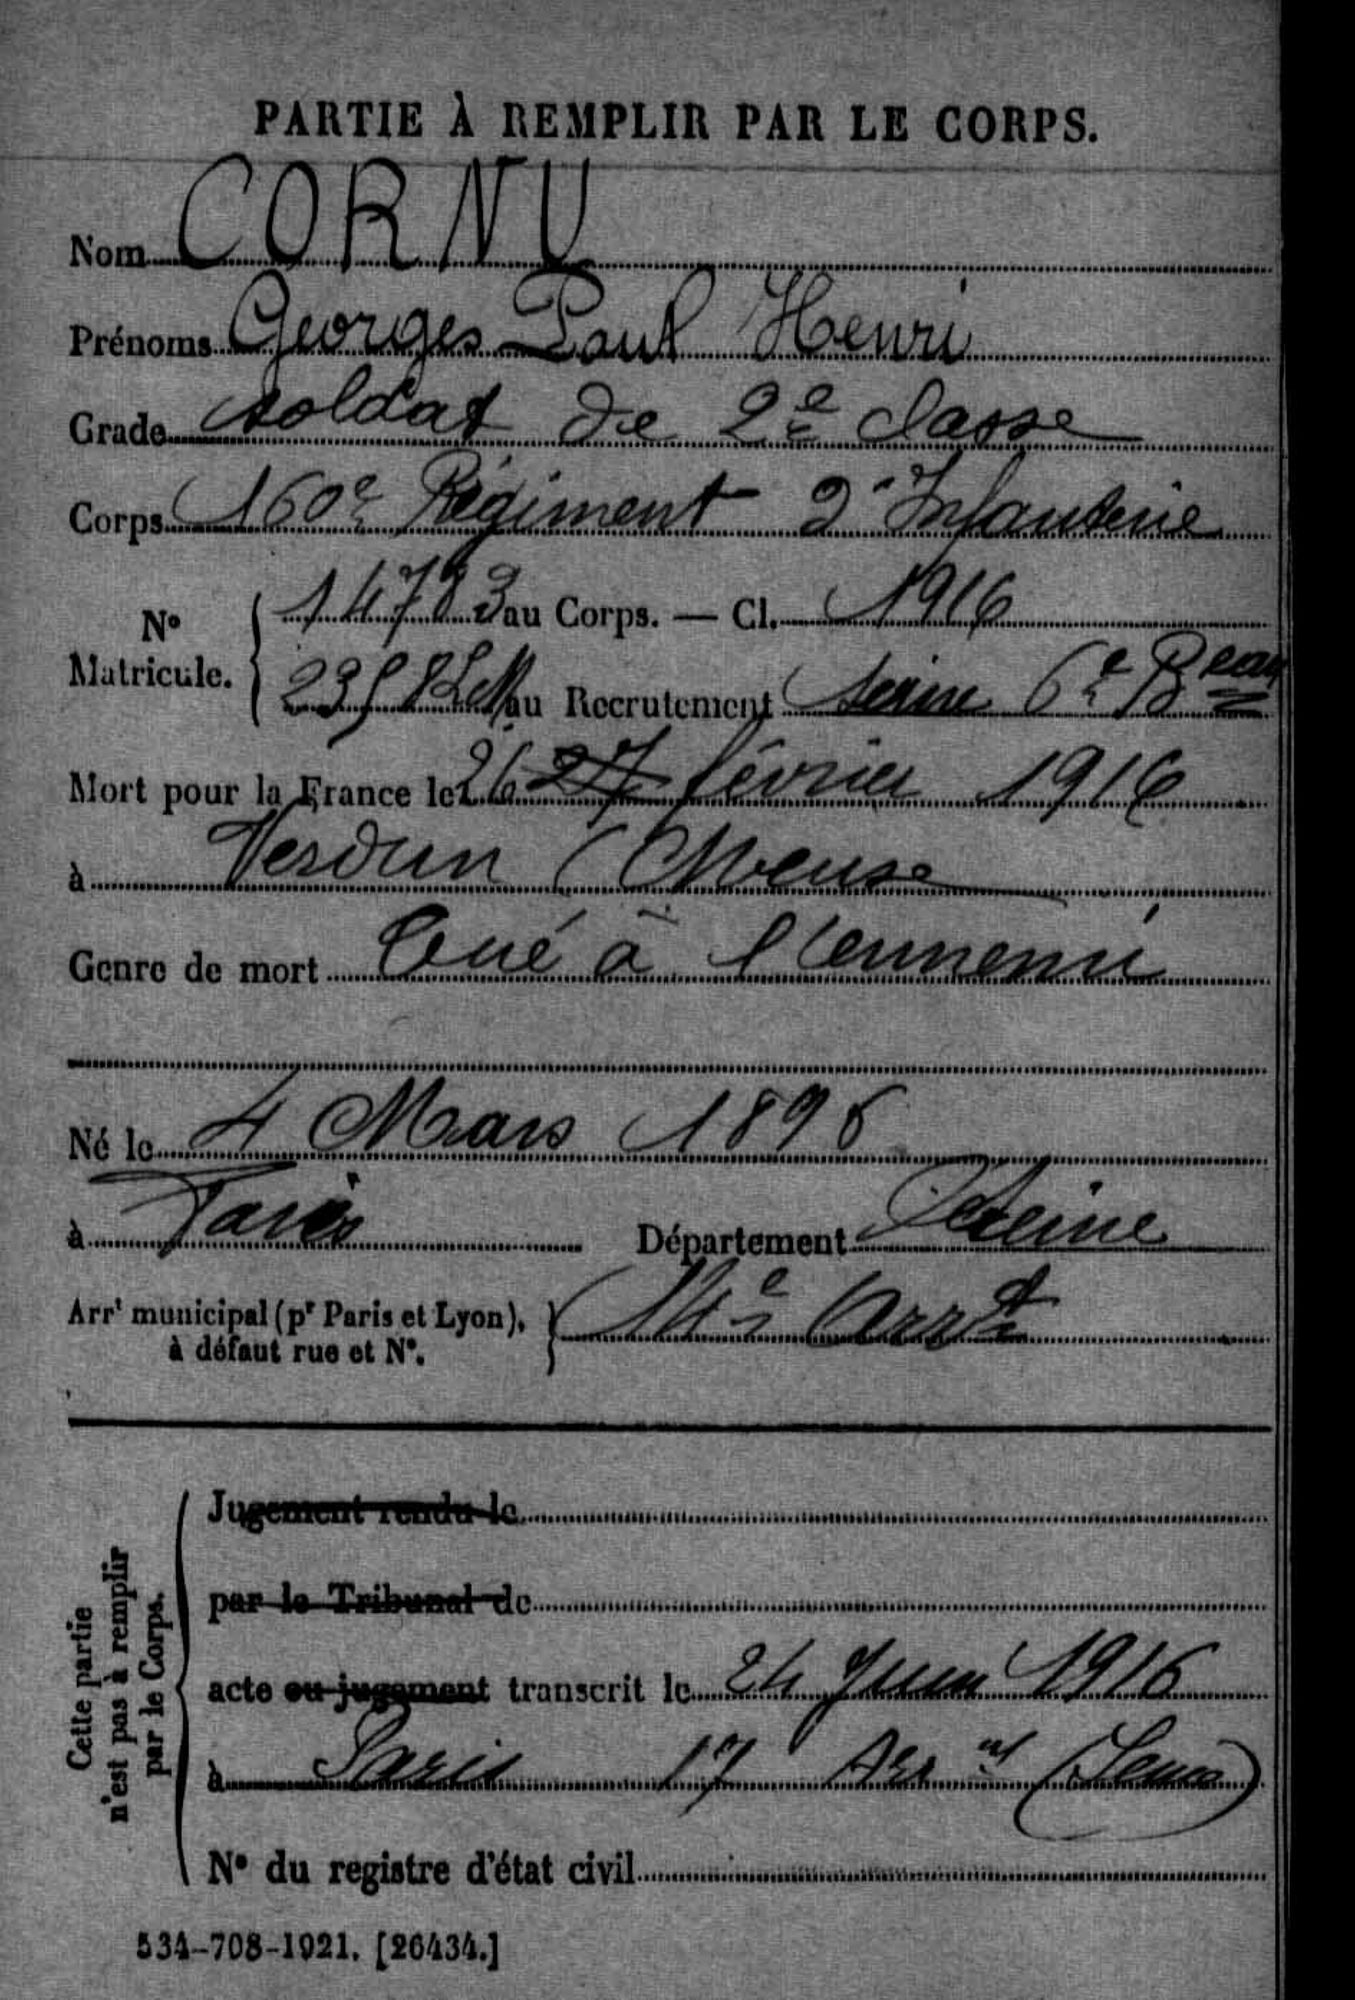 PARTIE À REMPLIR PAR LE CORPS.
Nom CORNU
Prénoms Georges Paul Henri
Grade soldat de 2e classe
Corps 160e Régiment d'Infanterie
No Matricule. { 14783 au Corps. — Cl. 1916
au Recrutement Seine 6e Beau
Mort pour la France le 26 27 février 1916
à Verdun (Meuse
Genre de mort Tué à l'ennemi
Né le 4 Mars 1896
à Paris Département Seine
Arrt municipal (pr Paris et Lyon), à défaut rue et No. } 14e Arrt
Cette partie n'est pas à remplir par le Corps.
Jugement rendu le
par le Tribunal de
acte ou jugement transcrit le 24 Juin 1916
à Paris 17 Arrt (Seine)
No du registre d'état civil
534-708-1921. [26434.]